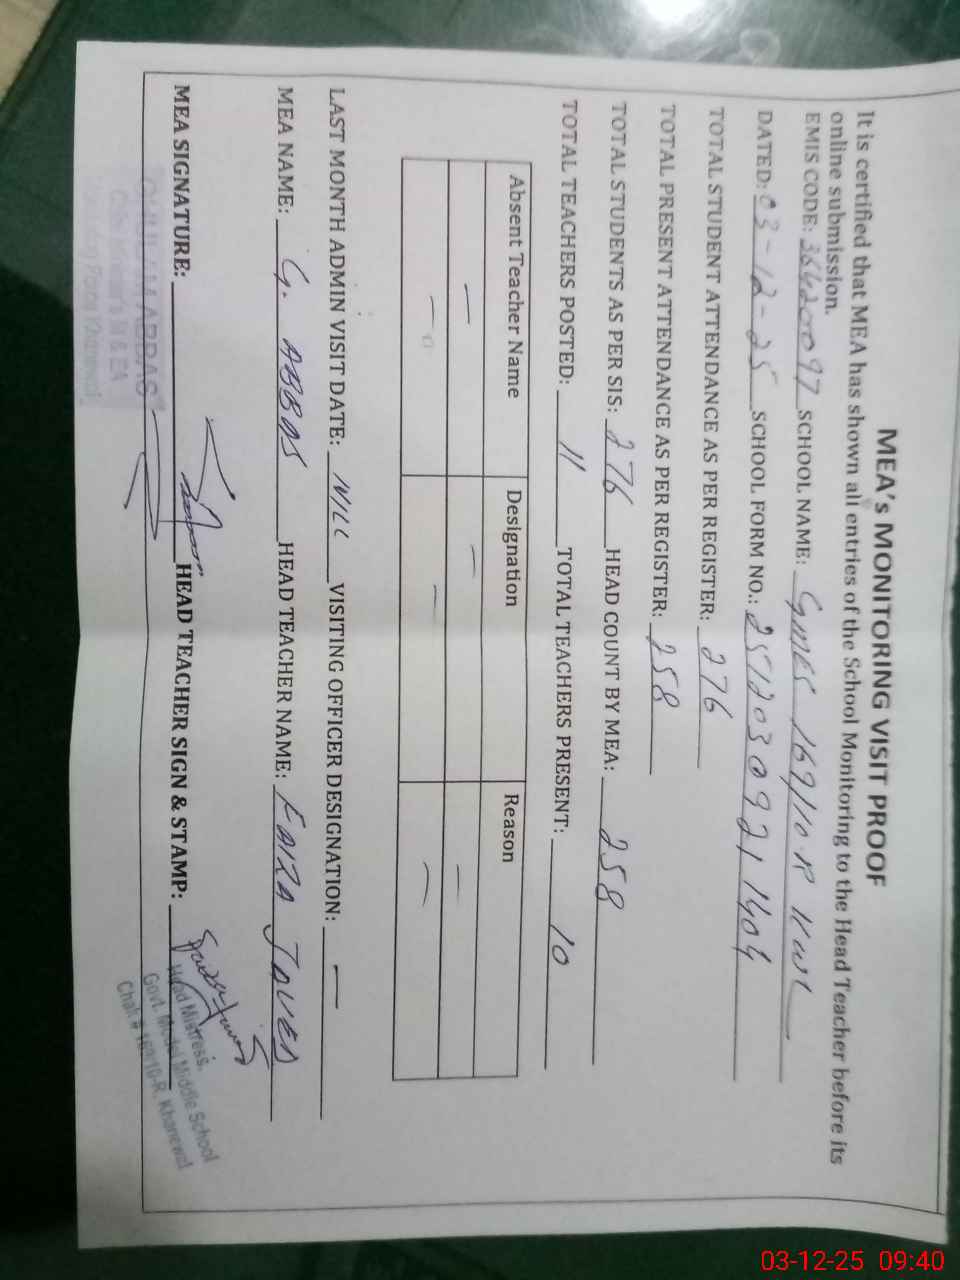 MEA's MONITORING VISIT PROOF
It is certified that MEA has shown all entries of the School Monitoring to the Head Teacher before its
online submission.
EMIS CODE: 36420097 SCHOOL NAME: GMES 169/10.R KWL
DATED: 03-12-25 SCHOOL FORM NO.: 25120309211404
TOTAL STUDENT ATTENDANCE AS PER REGISTER: 276
TOTAL PRESENT ATTENDANCE AS PER REGISTER: 258
TOTAL STUDENTS AS PER SIS: 276 HEAD COUNT BY MEA: 258
TOTAL TEACHERS POSTED: 11 TOTAL TEACHERS PRESENT: 10
Absent Teacher Name Designation Reason
— — —
— — —
LAST MONTH ADMIN VISIT DATE: NILL VISITING OFFICER DESIGNATION: —
MEA NAME: G. ABBAS HEAD TEACHER NAME: FAIZA JAVED
MEA SIGNATURE: HEAD TEACHER SIGN & STAMP:
GHULAM ABBAS
Head Mistress,
Govt. Model Middle School
Chak # 169/10-R, Khanewal
03-12-25 09:40